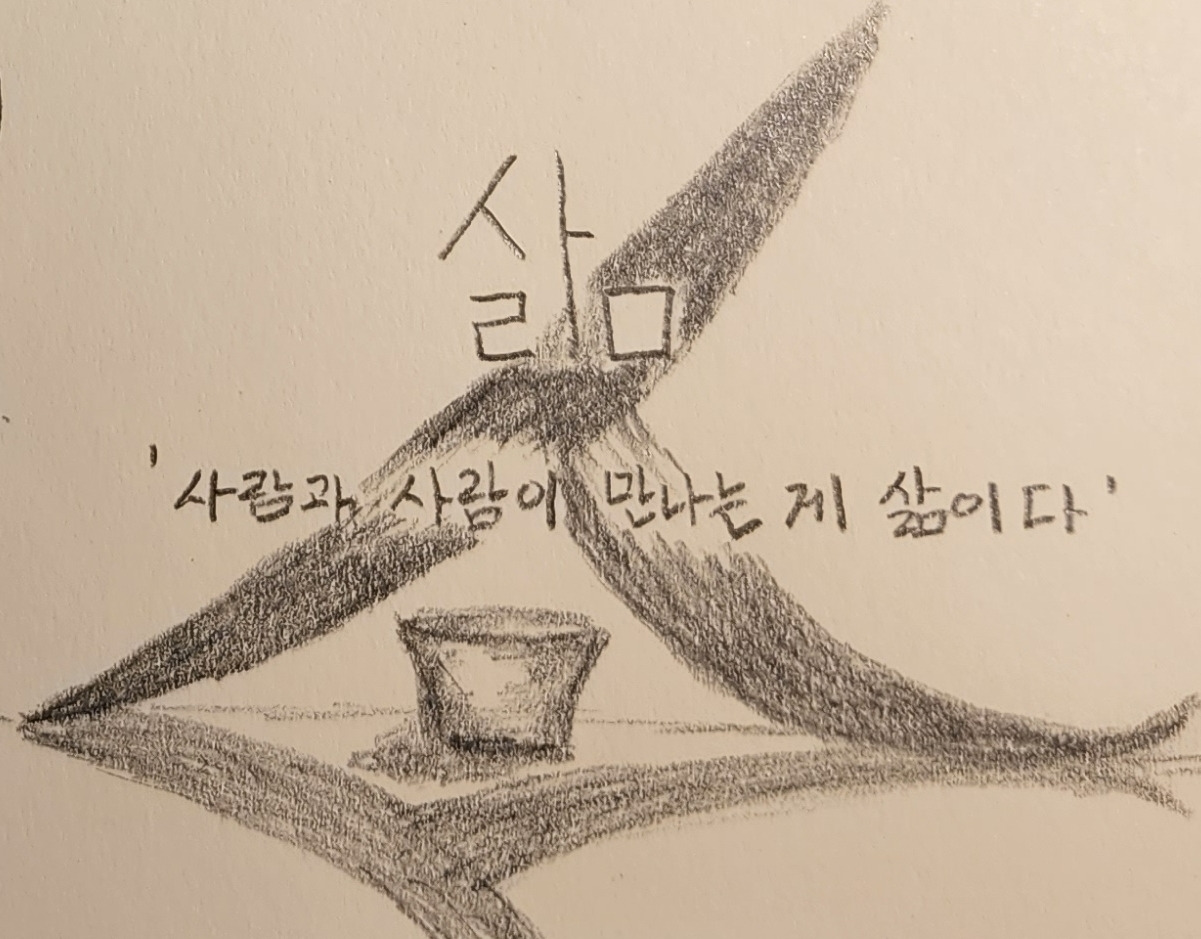 삶
'사람과 사람이 만나는 게 삶이다'